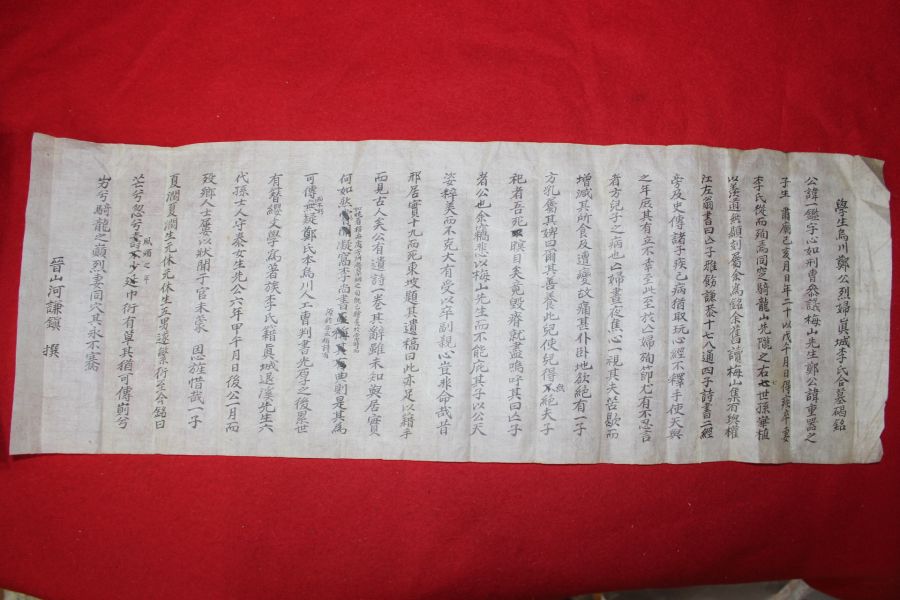 學生烏川鄭公烈婦眞城李氏合墓碣銘
公諱一鑑字心如刑曹參議梅山先生鄭公諱重器之
子生 肅廟己亥月日年二十以戊午月日得疾卒妻
李氏從而殉焉同窆騎龍山先隴之右七世孫華植
以羡道無顯刻屬余爲銘余舊讀梅山集有與權
江左翁書曰亡子雅飭謙恭十七八通四子詩書二經
旁及史傳諸子疾已病猶取玩心經不釋手使天與
之年庶其有立不幸至此至於亡婦殉節尤有不忍言
者方兒子之病也亡婦晝夜焦心一視其夫苦歇而
增減其所食及遭變故痛甚仆卧地飮絶有一子
方乳屬其婢曰爾其善養此兒使兒得無絶夫
祀者吾死瞑目矣竟毁瘠就盡嗚呼其曰亡子
者公也余竊悲以梅山先生而不能庇其子以公天
姿粹美而不克大有受以卒副親心豈非命哉昔
邢居實十九而死東坡題其遺稿曰此亦足以籍手
而見古人矣公有遺詩一卷其辭雖未知與居實
何如然 凝窩李尚書 則是其爲
可傳無疑鄭氏本烏川人工曹判書光厚之後累世
有簪纓文學爲著族李氏籍眞城退溪先生六
代孫士人守泰女生先公六年甲午月日後公一月而
歿鄕人士屢以狀聞于官未蒙 恩旌惜哉一子
夏澗夏澗生元休元休生五男遂繁衍至今銘曰
芒兮忽兮 巾衍有草其猶可傳前兮
屴兮騎龍之巔烈妻同穴其永不騫
晉山河謙鎭 撰